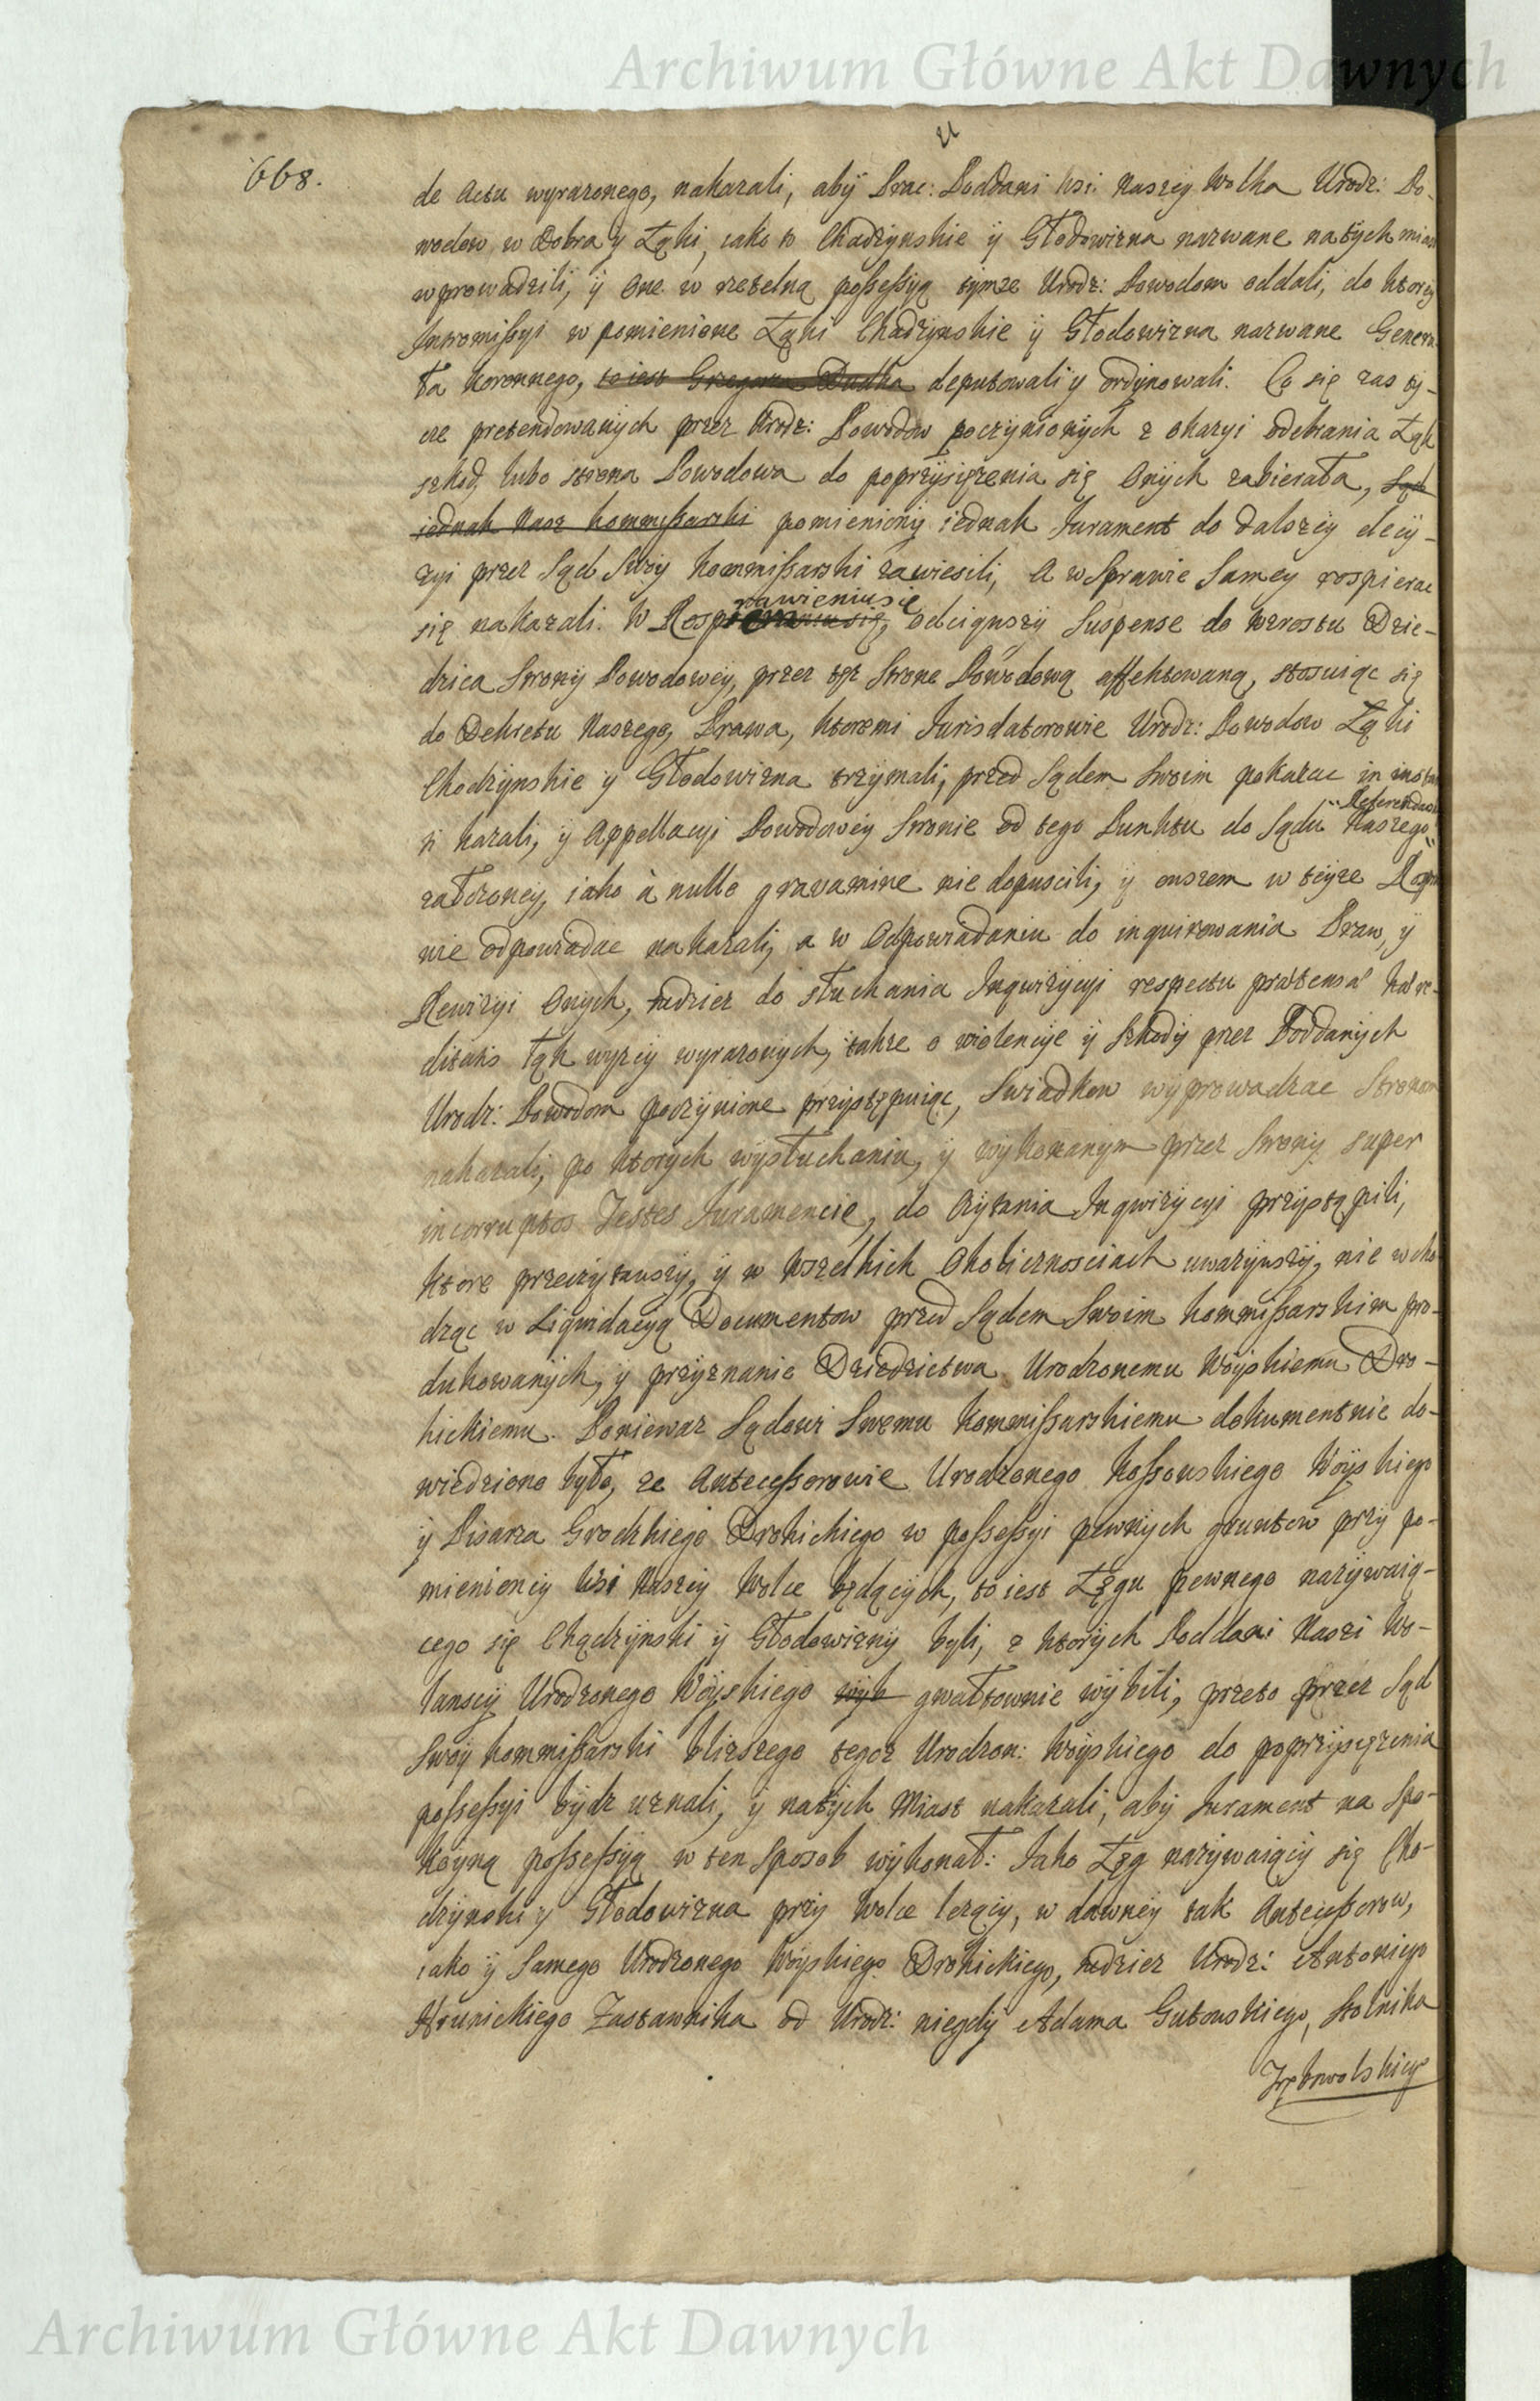 Archiwum Główne Akt Dawnych
668.
de Actu wyrażonego, nakazali, aby Prac: Poddani Wsi Naszey Wolka Urodz: Po-
wodow w Dobra y Łąki, iako to Chądzynskie ÿ Głodowizna nazwane natychmiast
wprowadzili, ÿ One w rzetelną possessyą tymze Urodz: Powodom oddali, do ktorey
Intromissyi w pomienione Łąki Chądzynskie ÿ Głodowizna nazwane Genera-
ła Koronnego, to iest Grzegorza Dudka deputowali y ordynowali. Co się zas ty-
cze pretendowanych przez Urodz: Powodow poczynionych z okazyi odebrania Łąk
szkod, lubo strona Powodowa do poprzysiężenia się Onych zabierała, Sąd
iednak Nasz Kommissarski pomieniony iednak Jurament do dalszey decy-
zyi przez Sąd Swoy Kommissarski zawiesili, A w Sprawie Samey rospierac
się nakazali. W Rosp rawieniu się odciąwszy Suspense do wzrostu Dzie-
dzica Strony Powodowey, przez tęż Strone Powodową affektowaną, stosuiąc się
do Dekretu Naszego, Prawa, ktoremi Jurisdatorowie Urodz: Powodow Łąki
Chodzynskie y Głodowizna trzymali, przed Sądem Swoim pokazac in instan-
ti kazali, ÿ Appellacyi Powodowey Stronie od tego Punktu do Sądu Naszego Referendar
założoney, iako à nullo gravamine nie dopuscili, ÿ owszem w teyze
nie odpowiadac nakazali, a w Odpowiadaniu do inquirowania Praw, ÿ
Rewizyi Onych, tudziez do słuchania Inqwizycyi respectu
Łąk wyzey wyrazonych, także o violencye ÿ Szkody przez Poddanych
Urodz: Powodom poczynione przystępuiąc, Swiadkow wyprowadzac Stronom
nakazali, po ktorych wysłuchaniu, ÿ wykonanym przez Strony super
incorruptos Testes Juramencie, do Czytania Inqwizycyi przystąpili,
Ktore przeczytawszy, ÿ w wszelkich Okolicznosciach uwazywszy, nie wcho-
dząc w Liquidacyą Documentow przed Sądem Swoim Kommissarskim pro-
dukowanych, y przyznanie Dziedzictwa Urodzonemu Woyskiemu Dro-
hickiemu. Poniewaz Sądowi Swemu Kommissarskiemu dokumentnie do-
wiedziono było, ze Antecessorowie Urodzonego Kossowskiego Woyskiego
ÿ Pisarza Grodzkiego Drohickiego w possessyi pewnych gruntow przy po-
mienioney Wsi Naszey Wolce będących, to iest Łęgu pewnego nazywaią-
cego się Chądzynski ÿ Głodowizny byli, z ktorych Poddani Naszi Wo-
lanscy Urodzonego Woyskiego wyb gwałtownie wybili, przeto przez Sąd
Swoy Kommissarski blizszego tegoz Urodzon: Woyskiego do poprzysiężenia
possessyi bydz uznali, ÿ natych Miast nakazali, aby Jurament na Spo-
koyną possessyą w ten Sposob wykonał: Jako Łęg nazywaiący się Cho-
dzynski y Głodowizna przy Wolce lezący, w dawney tak Antecessorow,
iako ÿ Samego Urodzonego Woyskiego Drohickiego, tudziez Urodz: Antoniego
Hrunickiego Zastawnika od Urodz: niegdy Adama Gutowskiego, Stolnika
Archiwum Główne Akt Dawnych